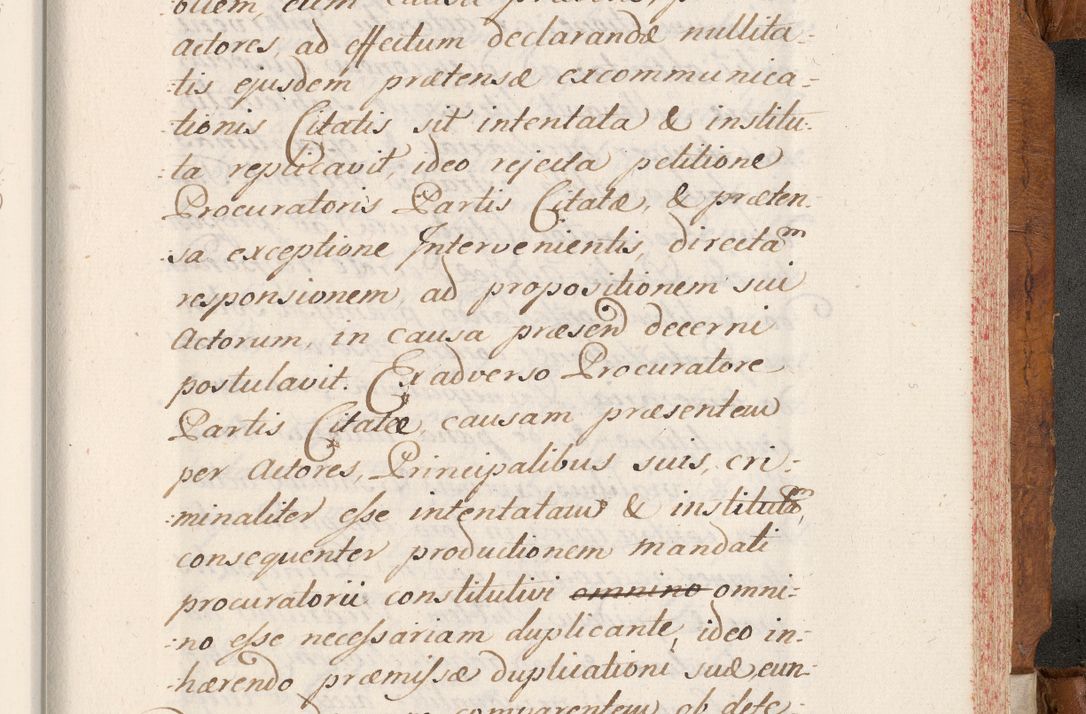 actores, ad effectum declarandæ nullita-
-tis ejusdem prætensæ excommunica-
-tionis Citatis sit intentata & institu-
-ta replicavit, ideo rejecta petitione
Procuratoris Partis Citatæ, & præten-
-sa exceptione Intervenientis, directam
responsionem, ad propositionem sui
Actorum, in causa præsend decerni
postulavit. Ex adverso Procuratore
Partis Citatæ, causam præsentem
per Actores, Principalibus suis, cri-
-minaliter esse intentatam & institutam,
consequenter productionem mandati
procuratorii constitutivi omnino omni-
-no esse necessariam duplicante, ideo in-
-hærendo præmissæ duplicationi suæ, eun-
comparentem ob defe-